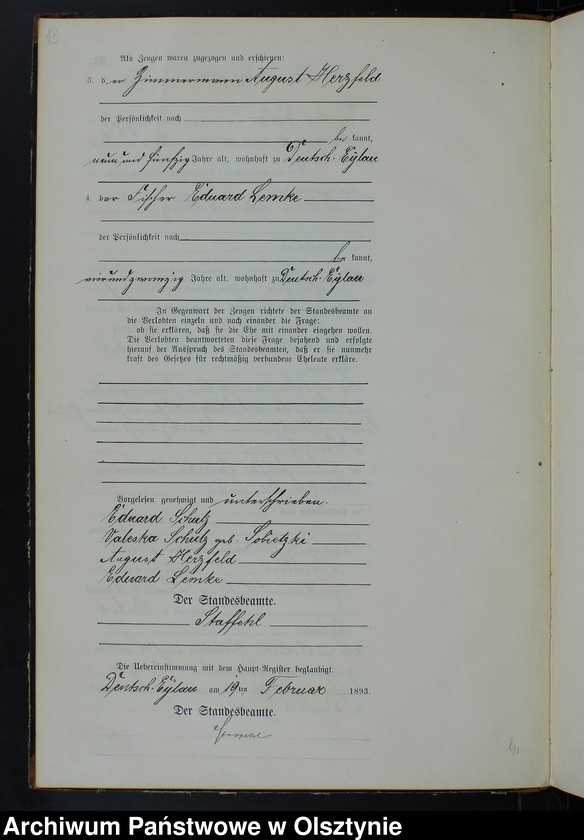 13
Als Zeugen waren zugezogen und erschienen:
3. der Zimmermann August Herzfeld
der Persönlichkeit nach
be kannt,
neun und fünfzig Jahre alt, wohnhaft zu Deutsch-Eylau
4. der Fischer Eduard Lemke
der Persönlichkeit nach
be kannt,
vierundzwanzig Jahre alt, wohnhaft zu Deutsch-Eylau
In Gegenwart der Zeugen richtete der Standesbeamte an
die Verlobten einzeln und nach einander die Frage:
ob sie erklären, daß sie die Ehe mit einander eingehen wollen.
Die Verlobten beantworteten diese Frage bejahend und erfolgte
hierauf der Ausspruch des Standesbeamten, daß er sie nunmehr
kraft des Gesetzes für rechtmäßig verbundene Eheleute erkläre.
Vorgelesen, genehmigt und unterschrieben.
Eduard Schulz
Valeska Schulz geb. Sobietzki
August Herzfeld
Eduard Lemke
Der Standesbeamte.
Staffehl
Die Uebereinstimmung mit dem Haupt-Register beglaubigt.
Deutsch-Eylau am 19ten Februar 1893.
Der Standesbeamte.
Staffehl
Archiwum Państwowe w Olsztynie